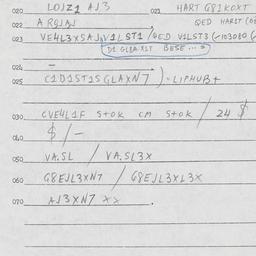 020 LOJZ1 AJ3 021 HART G81KOXT
022 A RGJAJ QED HARLT
023 VE4L3XSAJVJ1LST1 / QED V1LST3 (-103080
D1 GLBA X1T BESE ...
024 —
025 C1D1S T1S GLAXN7 ) = LIPHUB+
030 CVE4L1F S+OK CM S+OK / 24 $
040 $ / -
050 VA.SL / VA.SL3X
060 G8EJL3XN7 / G8EJL3XL3X
070 AJ3XN7 XX .